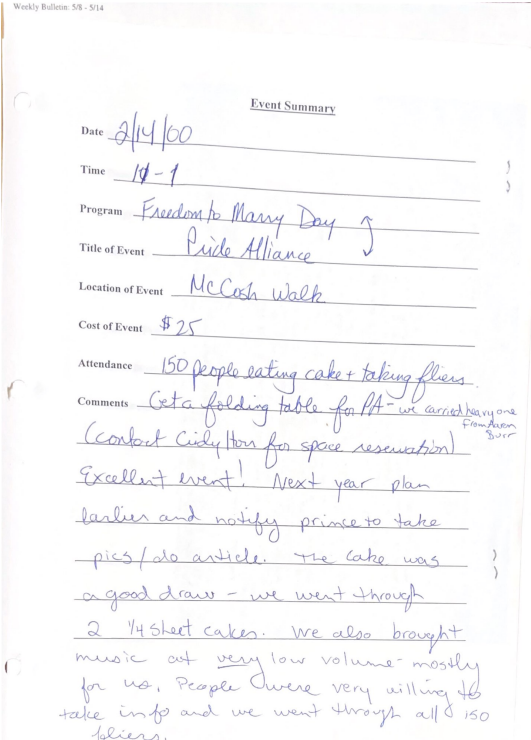 Weekly Bulletin: 5/8 - 5/14
Event Summary
Date 2/14/00
Time 11 - 1
Program Freedom to Marry Day
Title of Event Pride Alliance
Location of Event McCosh Walk
Cost of Event $25
Attendance 150 people eating cake + taking fliers.
Comments Get a folding table for PA - we carried heavy one
from Aaron
Burr
(contact for space reservation)
Excellent event! Next year plan
earlier and notify prince to take
pics/do article. The cake was
a good draw - we went through
2 1/4 sheet cakes. We also brought
music at very low volume - mostly
for us. People were very willing to
take info and we went through all 150
fliers.